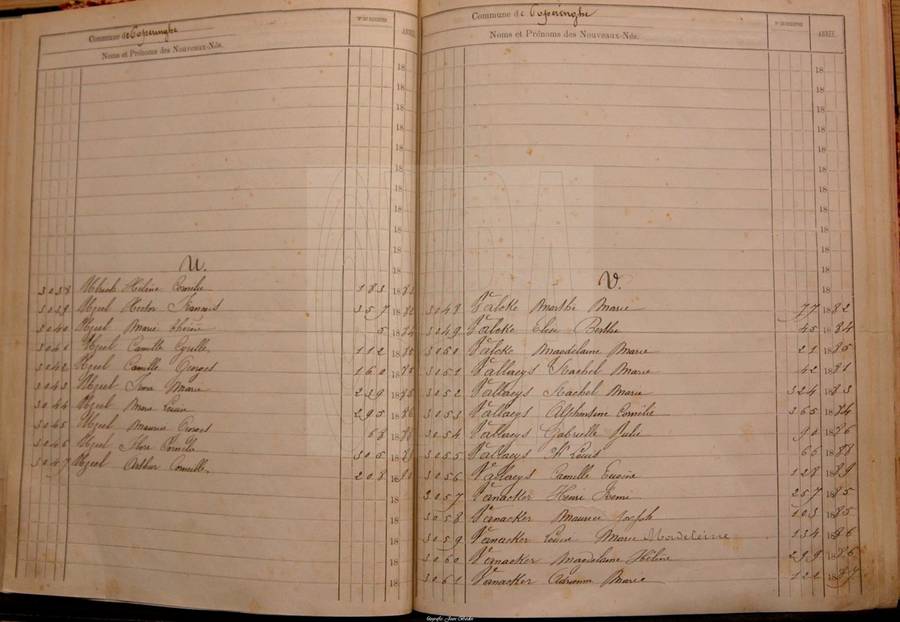 Commune de Poperinghe
Noms et Prénoms des Nouveaux-Nés.
ANNÉE
18
18
18
18
18
18
18
18
18
18
U.
3038 Hélène Cornelie 183 18
3039 Hector François 357 18
3040 Marie 5 18
3041 Camille Cyrille 112 18
3042 Camille Georges 160 1885
3043 Marie 239 18
3044 Marie Louise 295 1886
3045 Maurice Georges 68 18
3046 Flore Cornelie 305 18
3047 Arthur Corneille 208 18
18
18
18
18
18
Commune de Poperinghe
Noms et Prénoms des Nouveaux-Nés.
ANNÉE.
18
18
18
18
18
18
18
18
18
18
18
18
V.
3048 Valcke Marthe Marie 77 1882
3049 Valcke Elise Berthe 45 1884
3050 Valcke Magdelaine Marie 21 1885
3051 Vallaeys Rachel Marie 42 1881
3052 Vallaeys Rachel Marie 324 1883
3053 Vallaeys Alphonsine Cornelie 365 1884
3054 Vallaeys Gabrielle Julie 90 1886
3055 Vallaeys Louis 66 1888
3056 Vallaeys Camille Eugène 128 1889
3057 Vanacker Henri Remi 257 1885
3058 Vanacker Maurice Joseph 103 1885
3059 Vanacker Louise Marie Madeleine 134 1886
3060 Vanacker Magdelaine Hélène 299 1886
3061 Vanacker Marie 122 1887